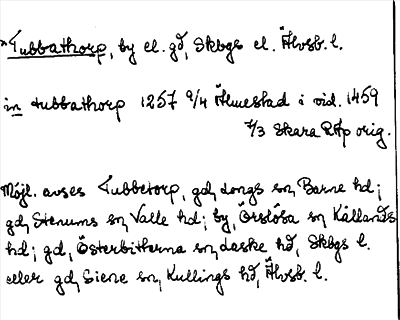 Tubbathorp, by el. gd, Skbgs el. Älvsb. l.
in tubbathorp 1257 9/4 Älmestad i vid. 1459
7/3 Skara RAp orig.
Möjl. avses Tubbetorp, gd, Longs sn, Barne hd;
gd, Stenums sn, Valle hd; by, Örslösa sn, Kållands
hd; gd, Österbitterna sn, Laske hd, Skbgs l.
eller gd, Siene sn, Kullings hd, Älvsb. l.